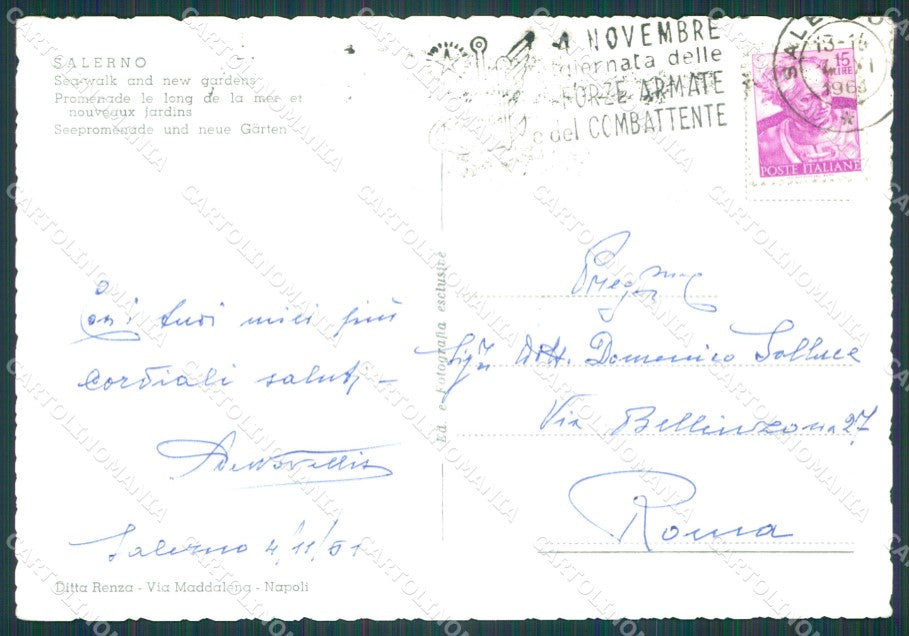 SALERNO
Sea-walk and new gardens
Promenade le long de la mer et
nouveaux jardins
Seepromenade und neue Gärten
4 NOVEMBRE
giornata delle
FORZE ARMATE
e del COMBATTENTE
SALERNO
13-15
15
LIRE
POSTE ITALIANE
Ed. e Fotografia esclusive
Coi tuoi miei più
cordiali saluti -
Salerno 4/11/61
Preg.mo
Sig. Dott. Domenico Solluce
Via Bellinzona 27
Roma
Ditta Renza - Via Maddalena - Napoli
CARTOLINOMANIA